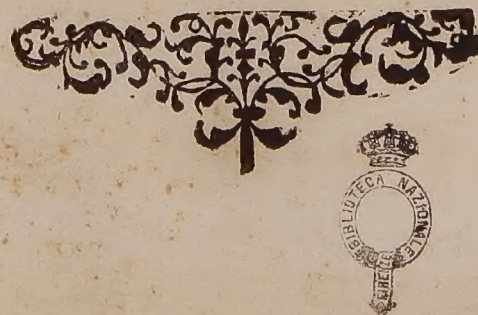 BIBLIOTECA NAZIONALE
FIRENZE